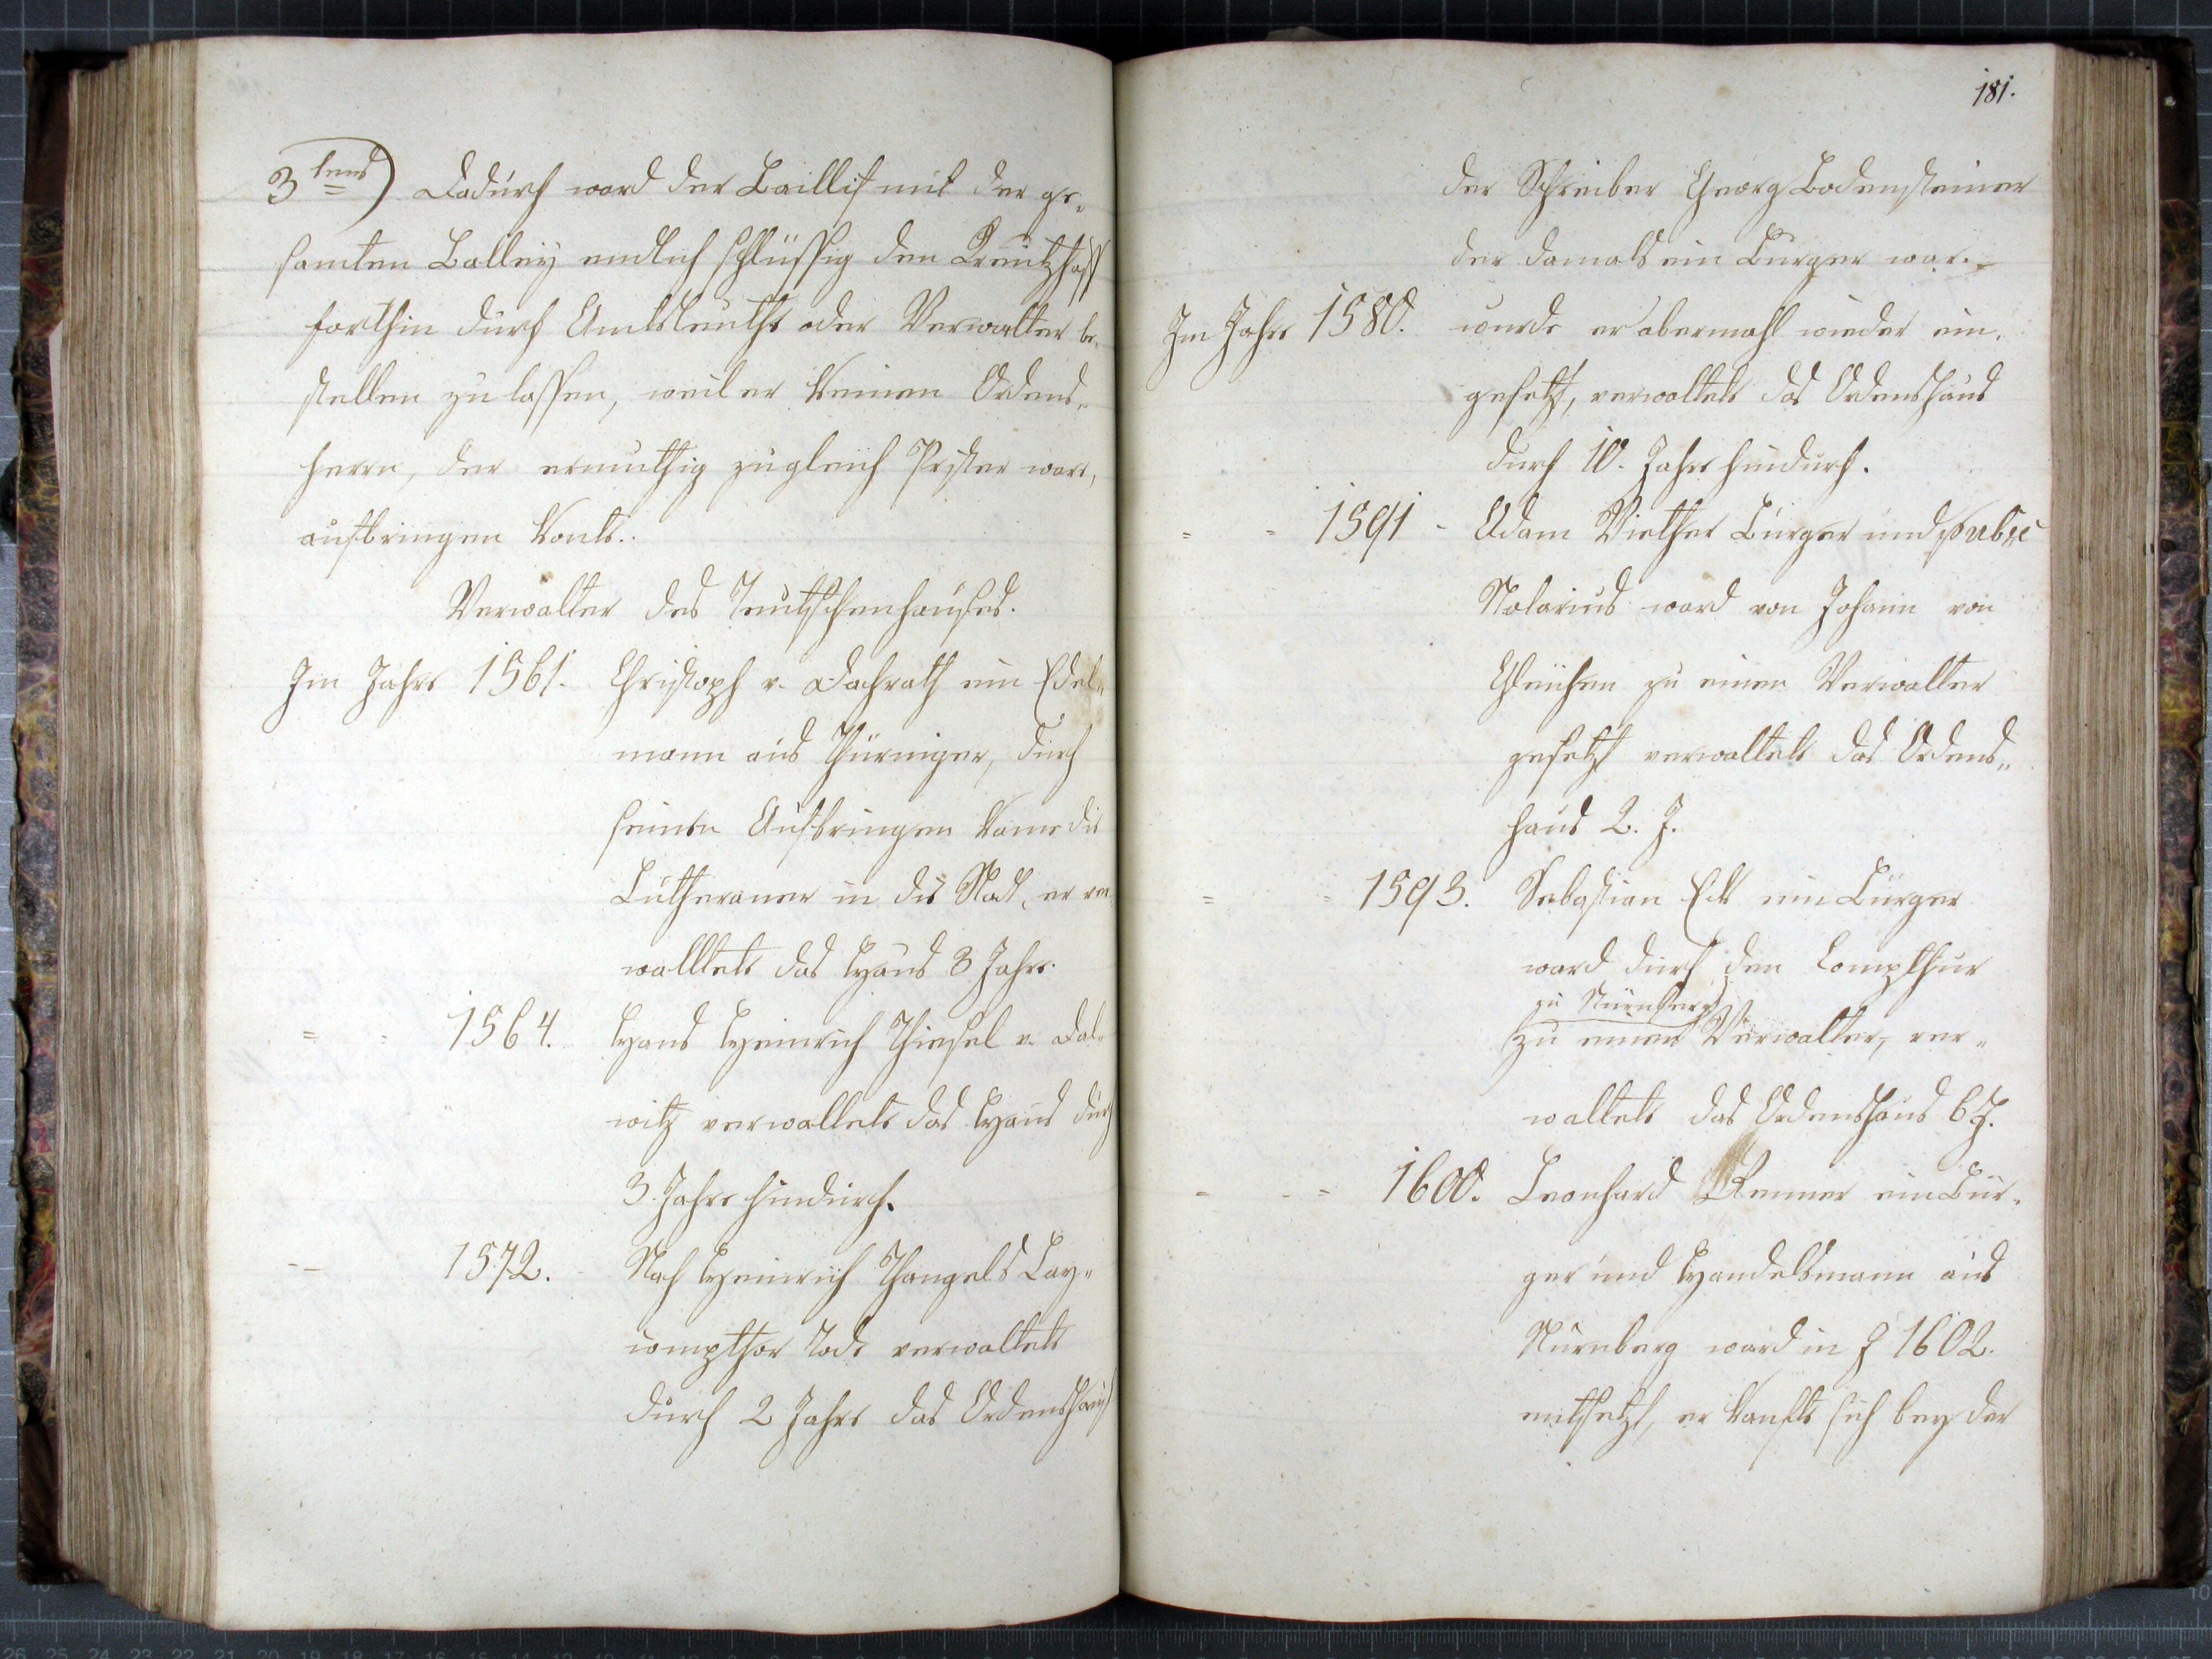 3tens) Dadurch ward der Baillif mit der ge„
samten Balley endlich schlüssig den Kreutzhoff
forthin durch Amtsleuthe oder Verwalter be„
stellen zu lassen, weil er keinen Ordens„
herrn, der ermuthig zugleich Prister ware,
aufbringen konte.
Verwalter des Teutschenhauses.
Im Jahre 1561. Christoph v. Dachrath ein Edel„
mann aus Thüringer, durch
seinen Aufbringen kame die
Lutheraner in die Stadt, er ver„
walltete das Haus 3 Jahre.
= = 1564. Hans Heinrich Thiesel v. Dal„
witz verwaltete das Haus durch
3. Jahre hindurch.
-- 1572. Nach Heinrich Thangels Lay„
compthor Tode verwaltete
durch 2 Jahre das Ordenshaus
181.
der Schreiber Georg Bodensteiner
der damals ein Burger war.
Im Jahre 1580. wurde er abermahl wieder ein„
gesetzt, verwaltete das Ordenshaus
durch 10. Jahre hindurch.
= = 1591 - Adam Viether Burger und public
Notarius ward von Johann von
Gleichen zu einen Verwalter
gesetzt verwaltete das Ordens„
haus 2. J.
= = 1593. Sebastian Eck ein Burger
ward durch den Compthur
zu Nürnberg
zu einen Verwalter, ver„
waltete das Ordenshaus 6 J.
= - = 1600. Leonhard Renner ein Bur„
ger und Handelsmann aus
Nürnberg ward in J 1602.
entsetzt, er kaufte sich bey der